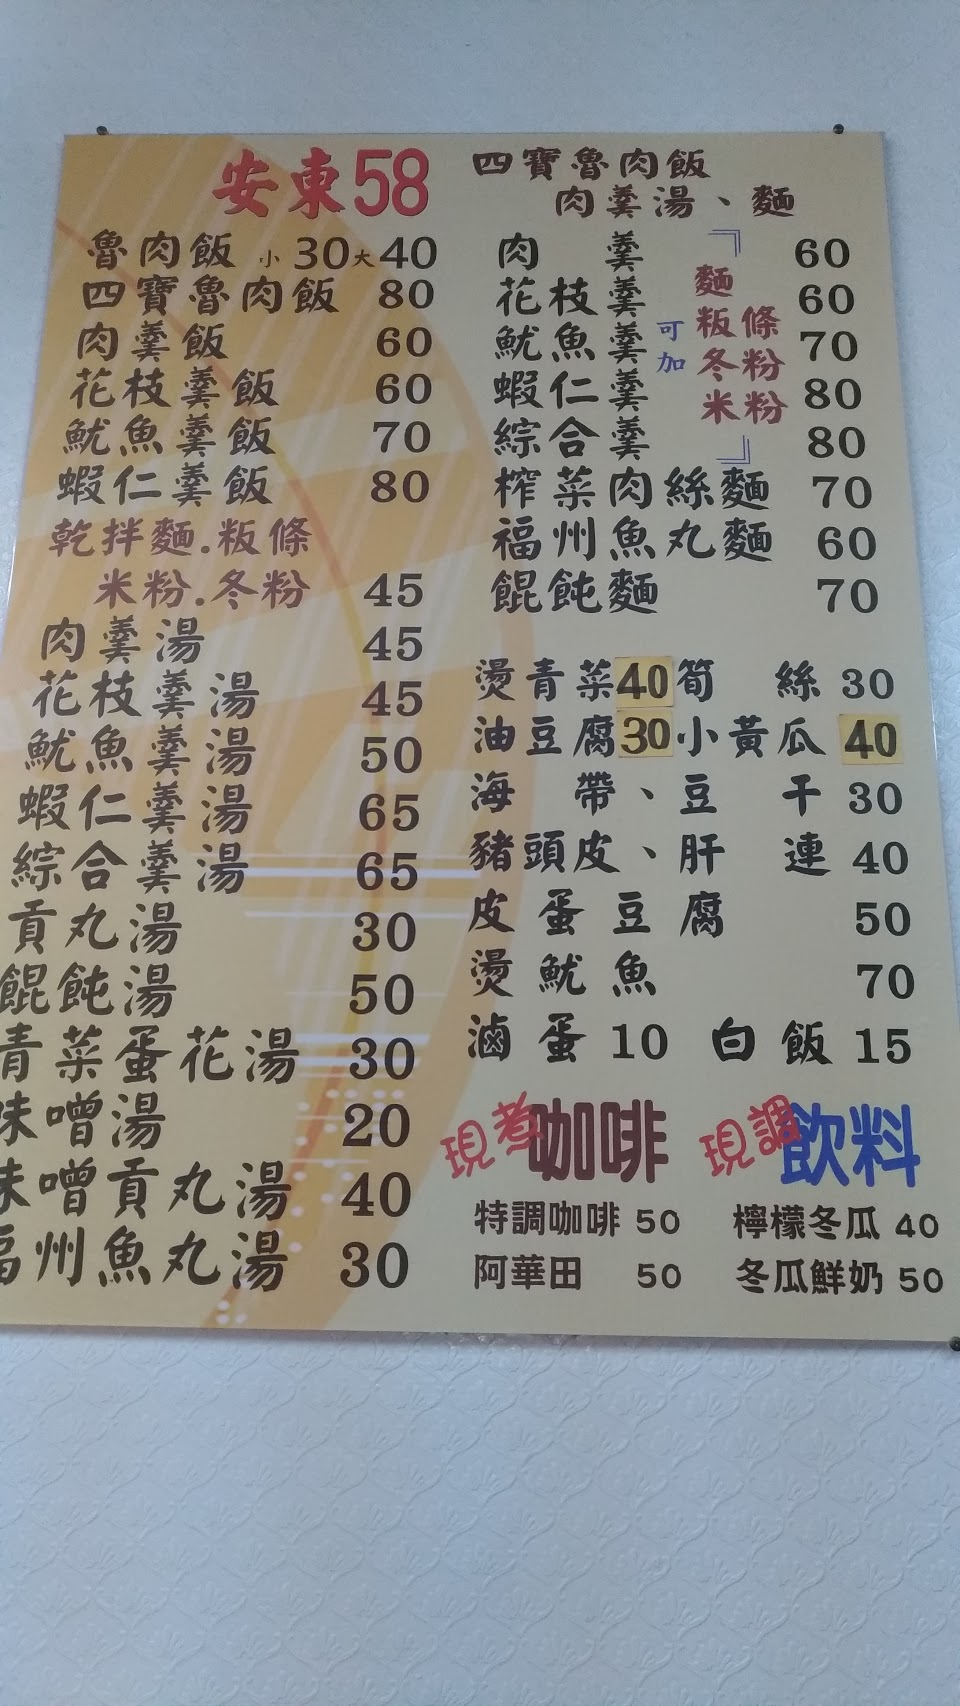 安東58
四寶魯肉飯
肉羹湯、麵
魯肉飯 小30大40
四寶魯肉飯 80
肉羹飯 60
花枝羹飯 60
魷魚羹飯 70
蝦仁羹飯 80
乾拌麵.粄條
米粉.冬粉 45
肉羹湯 45
花枝羹湯 45
魷魚羹湯 50
蝦仁羹湯 65
綜合羹湯 65
貢丸湯 30
餛飩湯 50
青菜蛋花湯 30
味噌湯 20
味噌貢丸湯 40
福州魚丸湯 30
肉羹 60
花枝羹 60
魷魚羹 70
蝦仁羹 80
綜合羹 80
可加
『麵
粄條
冬粉
米粉』
榨菜肉絲麵 70
福州魚丸麵 60
餛飩麵 70
燙青菜40 筍絲 30
油豆腐30 小黃瓜 40
海帶、豆干 30
豬頭皮、肝連 40
皮蛋豆腐 50
燙魷魚 70
滷蛋 10 白飯 15
現煮咖啡
特調咖啡 50
阿華田 50
現調飲料
檸檬冬瓜 40
冬瓜鮮奶 50